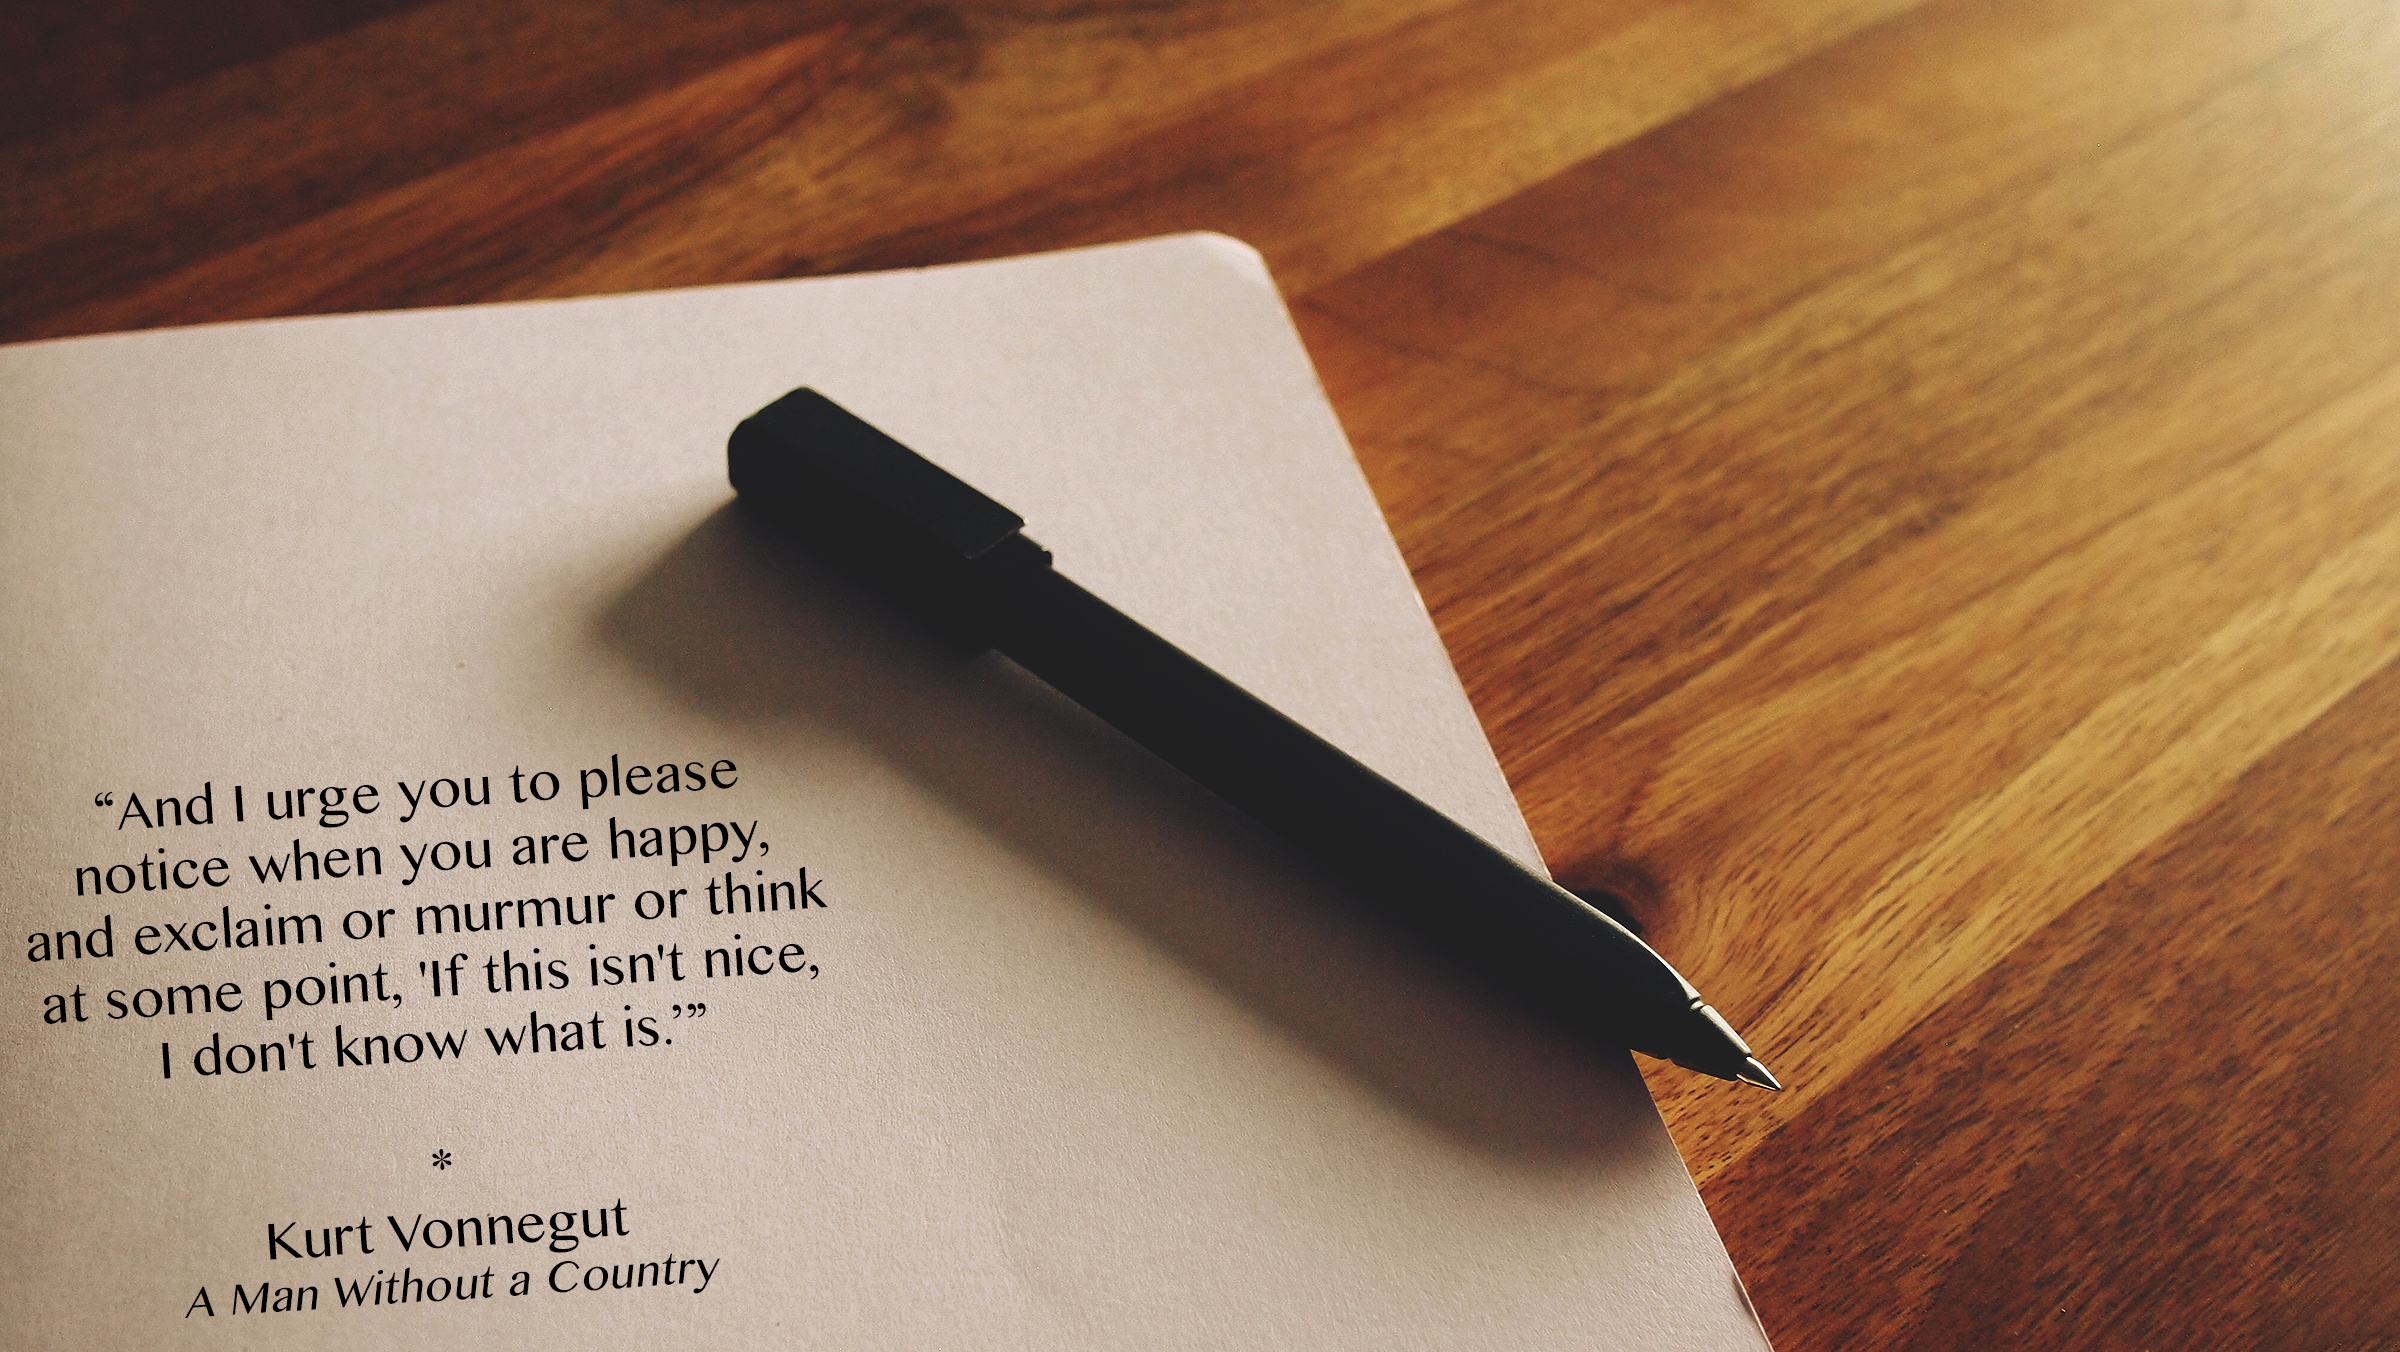 “And I urge you to please
notice when you are happy,
and exclaim or murmur or think
at some point, 'If this isn't nice,
I don't know what is.’”
*
Kurt Vonnegut
A Man Without a Country